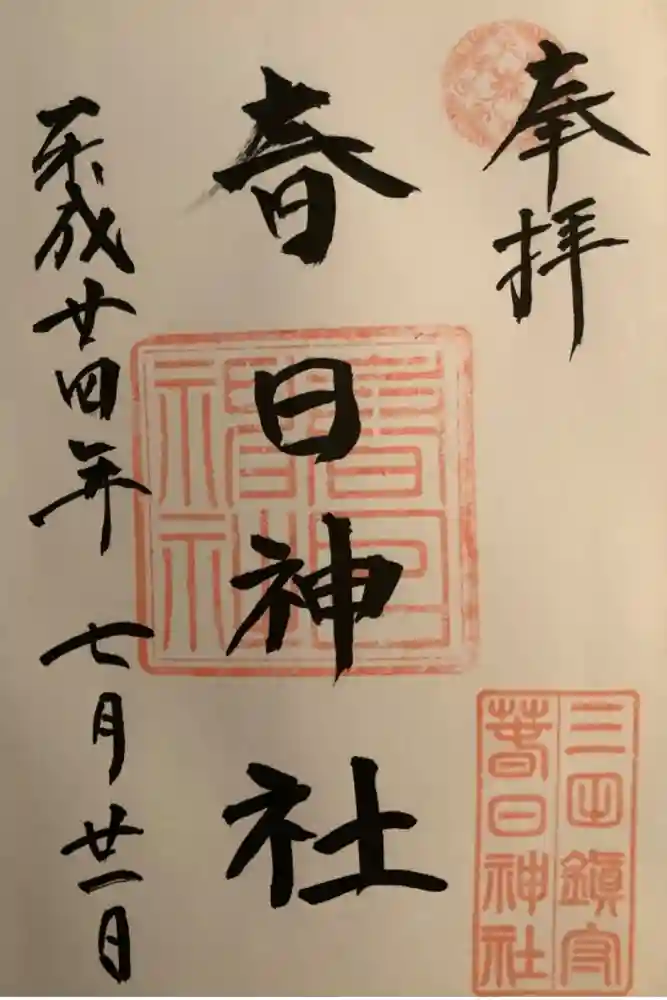 奉拝
春日神社
平成廿四年 七月廿一日
三田鎮守
春日神社